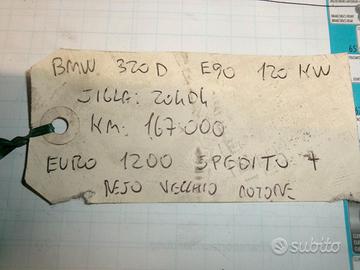 BMW 320D E90 120 KW
SIGLA: 204D4
KM: 167.000
EURO 1200 SPEDITO +
RESO VECCHIO MOTORE
subito